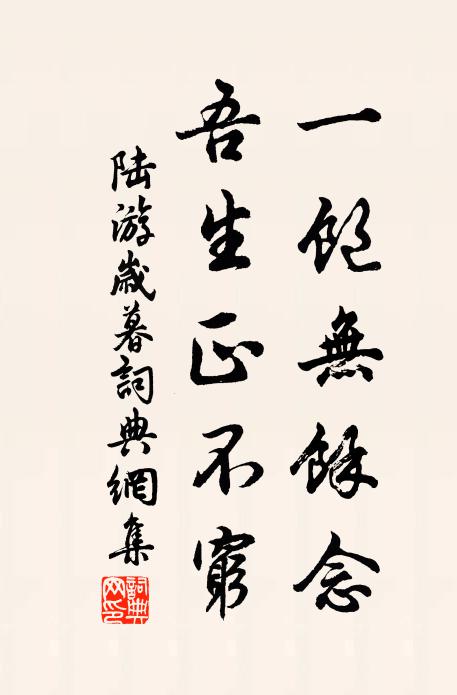 一飽無餘念
吾生正不窮
陸游歲暮詞典網集
詞典網印